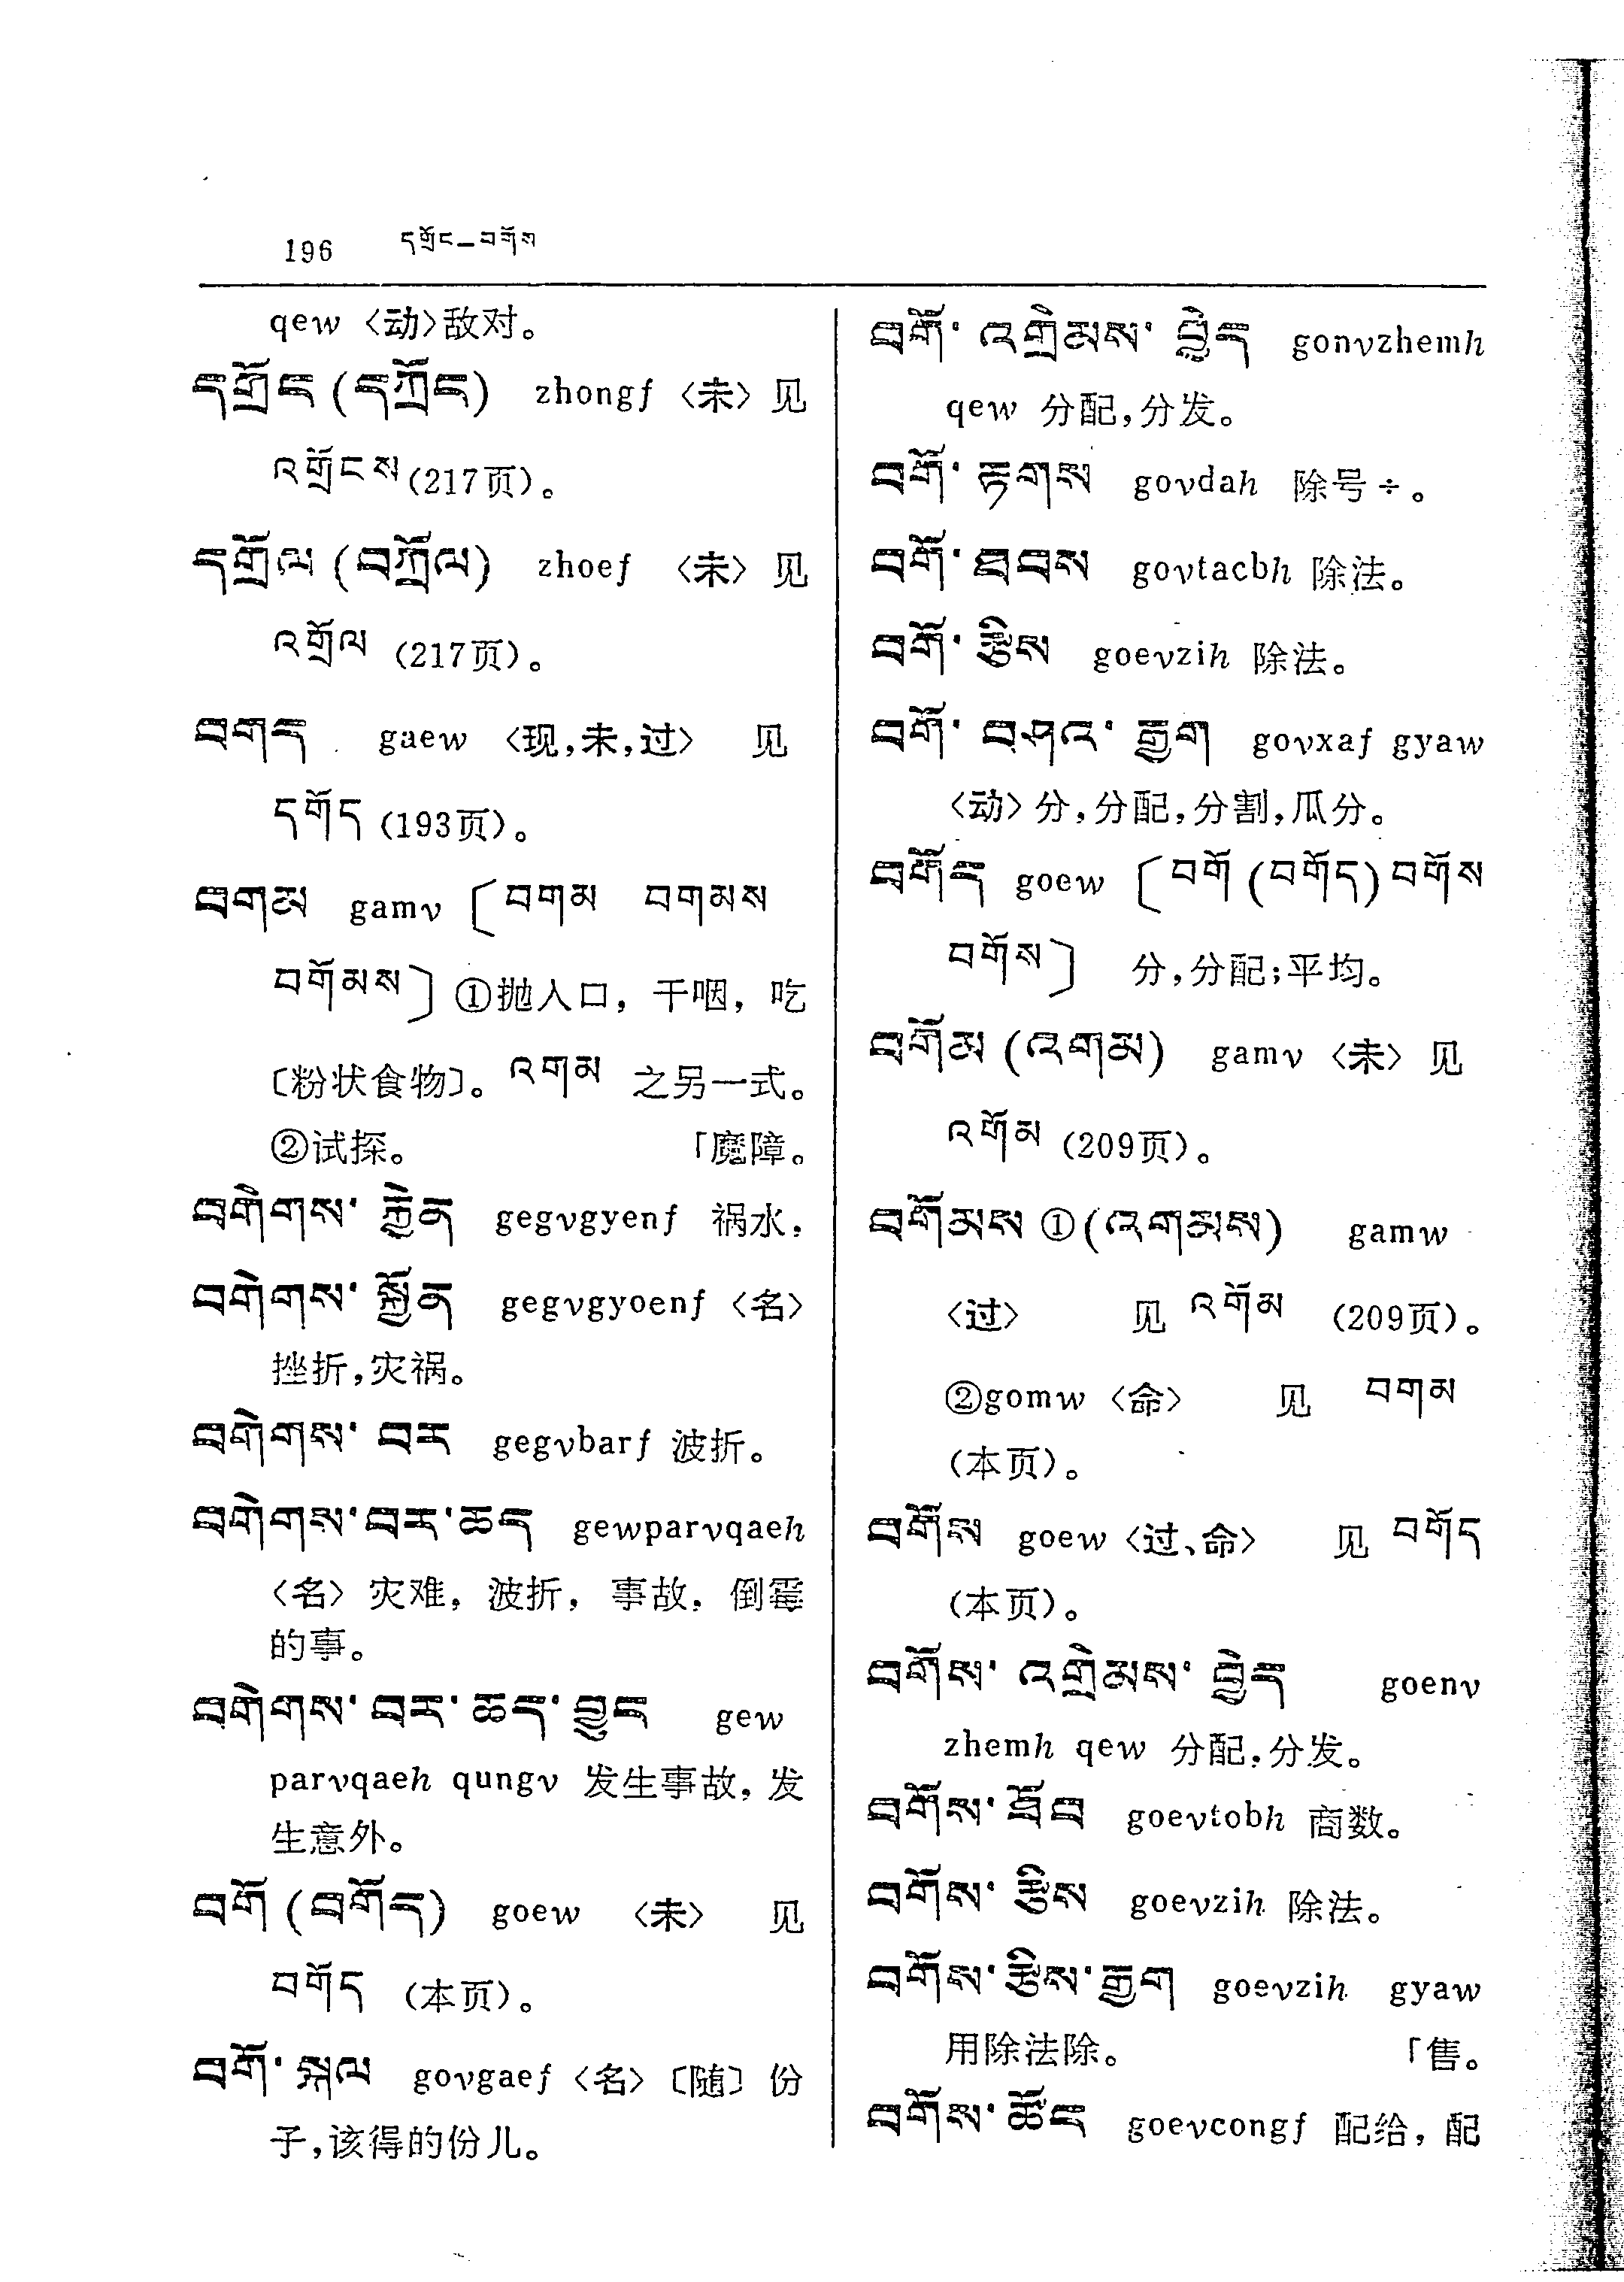 196 དགྲོང—བགོས
qew 〈动〉敌对。
དགྲོང (དཀྲོང) zhongf 〈未〉见
འགྲོངས(217页)。
དགྲོལ (བཀྲོལ) zhoef 〈未〉见
འགྲོལ (217页)。
བགད gaew 〈现,未,过〉 见
དགོད (193页)。
བགམ gamv 〔བགམ བགམས
བགོམས〕①抛入口，干咽，吃
〔粉状食物〕。འགམ 之另一式。
②试探。 「魔障。
བགེགས་ རྐྱེན gegvgyenf 祸水，
བགེགས་ སྐྱོན gegvgyoenf 〈名〉
挫折,灾祸。
བགེགས་ བར gegvbarf 波折。
བགེགས་བར་ཆད gewparvqaeh
〈名〉灾难，波折，事故，倒霉
的事。
བགེགས་བར་ཆད་བྱུང gew
parvqaeh qungv 发生事故，发
生意外。
བགོ (བགོད) goew 〈未〉 见
བགོད (本页)。
བགོ་ སྐལ govgaef 〈名〉〔随〕份
子,该得的份儿。
བགོ་ འགྲེམས་ བྱེད gonvzhemh
qew 分配,分发。
བགོ་ རྟགས govdah 除号÷。
བགོ་ ཐབས govtacbh 除法。
བགོ་ རྩིས goevzih 除法。
བགོ་ བཤའ་ རྒྱག govxaf gyaw
〈动〉分,分配,分割,瓜分。
བགོད goew 〔བགོ (བགོད) བགོས
བགོས〕 分,分配;平均。
བགོམ (འགམ) gamv 〈未〉见
འགོམ (209页)。
བགོམས ①(འགམས) gamw
〈过〉 见 འགོམ (209页)。
②gomw 〈命〉 见 བགམ
(本页)。
བགོས goew 〈过、命〉 见 བགོད
(本页)。
བགོས་ འགྲེམས་ བྱེད goenv
zhemh qew 分配,分发。
བགོས་ ཐོབ goevtobh 商数。
བགོས་ རྩིས goevzih 除法。
བགོས་རྩིས་རྒྱག goevzih gyaw
用除法除。 「售。
བགོས་ ཚོང goevcongf 配给，配